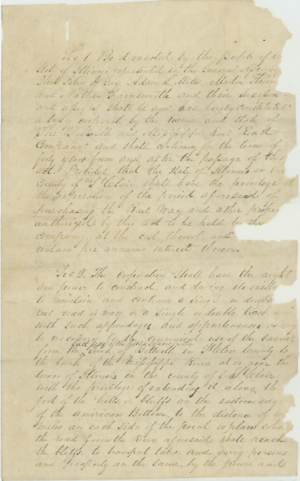 Sec 1 Be it enacted by the People of the
State of Illinois represented in the General Assembly
That John
and their successors
and assigns shall be and are hereby constituted
a body corporate by the name and style of
The Belleville and Mississippi Rail Road
Company and shall continue for the term of
forty years from and after the passage of this
act. Provided that the State of Illinois or the
County of St Clair shall have the privilege at
the of the period aforesaid of
purchasing the Rail Way and other property
authorized by this act to be held by the
company, at the cost thereof and
certain per annum interest thereon.
Sec 2. The corporation shall have the right
and power to construct and during its
to maintain and continue a single or double
rail road or way or a single or double track
with such appendages and appurtenances as may
be
from the of Belleville in St Clair County to
the bank of the Mississippi River at or near the
town of in the county of St Clair
with the privilege of extending it along the
foot of the hills or bluffs on the eastern edge
of the American Bottom to the distance of
miles on each side of the point or place where
the road from the River aforesaid shall reach
the bluffs, to transport take and carry persons
and property on the same by the power and